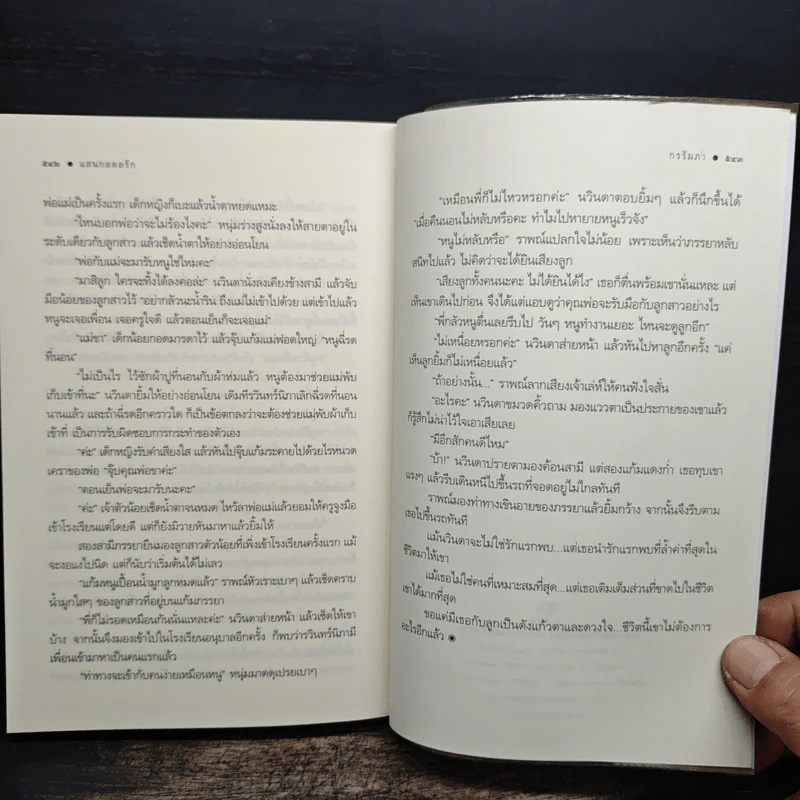 ๕๔๒ ● แสนกลดลรัก
พ่อแม่เป็นครั้งแรก เด็กหญิงก็เบะแล้วน้ำตาหยดแหมะ
“ไหนบอกพ่อว่าจะไม่ร้องไงคะ” หนุ่มร่างสูงนั่งลงให้สายตาอยู่ใน
ระดับเดียวกับลูกสาว แล้วเช็ดน้ำตาให้อย่างอ่อนโยน
“พ่อกับแม่จะมารับหนูใช่ไหมคะ”
“มาสิลูก ใครจะทิ้งได้ลงคอล่ะ” นวินดานั่งลงเคียงข้างสามี แล้วจับ
มือน้อยของลูกสาวไว้ “อย่ากลัวนะน้ำริน ถึงแม่ไม่เข้าไปด้วย แต่เข้าไปแล้ว
หนูจะเจอเพื่อน เจอครูใจดี แล้วตอนเย็นก็จะเจอแม่”
“แม่ขา” เด็กน้อยกอดมารดาไว้ แล้วจุ๊บแก้มแม่ฟอดใหญ่ “หนูฉี่รด
ที่นอน”
“ไม่เป็นไร ไว้ซักผ้าปูที่นอนกับผ้าห่มแล้ว หนูต้องมาช่วยแม่พับ
เก็บเข้าที่นะ” นวินดายิ้มให้อย่างอ่อนโยน เดิมทีรวินทร์นิภาเลิกฉี่รดที่นอน
นานแล้ว และถ้าฉี่รดอีกคราวใด ก็เป็นข้อตกลงว่าจะต้องช่วยแม่พับผ้าเก็บ
เข้าที่ เป็นการรับผิดชอบการกระทำของตัวเอง
“ค่ะ” เด็กหญิงรับคำเสียงใส แล้วหันไปจุ๊บแก้มระคายไปด้วยไรหนวด
เคราของพ่อ “จุ๊บคุณพ่อขาค่ะ”
“ตอนเย็นพ่อจะมารับนะคะ”
“ค่ะ” เจ้าตัวน้อยเช็ดน้ำตาจนหมด ไหว้ลาพ่อแม่แล้วยอมให้ครูจูงมือ
เข้าโรงเรียนแต่โดยดี แต่ก็ยังมิวายหันมาหาแล้วยิ้มให้
สองสามีภรรยายืนมองลูกสาวตัวน้อยที่เพิ่งเข้าโรงเรียนครั้งแรก แม้
จะงอแงไปนิด แต่ก็นับว่าเริ่มต้นได้ไม่เลว
“แก้มหนูเปื้อนน้ำมูกลูกหมดแล้ว” ราพณ์หัวเราะเบาๆ แล้วเช็ดคราบ
น้ำมูกใสๆ ของลูกสาวที่อยู่บนแก้มภรรยา
“พี่ก็ไม่รอดเหมือนกันนั่นแหละค่ะ” นวินดาส่ายหน้า แล้วเช็ดให้เขา
บ้าง จากนั้นจึงมองเข้าไปในโรงเรียนอนุบาลอีกครั้ง ก็พบว่ารวินทร์นิภามี
เพื่อนเข้ามาหาเป็นคนแรกแล้ว
“ท่าทางจะเข้ากับคนง่ายเหมือนหนู” หนุ่มมาดดุเปรยเบาๆ
กรรัมภา ● ๕๔๓
“เหมือนพี่ก็ไม่ไหวหรอกค่ะ” นวินดาตอบยิ้มๆ แล้วก็นึกขึ้นได้
“เมื่อคืนนอนไม่หลับหรือคะ ทำไมไปหายายหนูเร็วจัง”
“หนูไม่หลับหรือ” ราพณ์แปลกใจไม่น้อย เพราะเห็นว่าภรรยาหลับ
สนิทไปแล้ว ไม่คิดว่าจะได้ยินเสียงลูก
“เสียงลูกทั้งคนนะคะ ไม่ได้ยินได้ไง” เธอก็ตื่นพร้อมเขานั่นแหละ แต่
เห็นเขาเดินไปก่อน จึงได้แต่แอบดูว่าคุณพ่อจะรับมือกับลูกสาวอย่างไร
“พี่กลัวหนูตื่นเลยรีบไป วันๆ หนูทำงานเยอะ ไหนจะดูลูกอีก”
“ไม่เหนื่อยหรอกค่ะ” นวินดาส่ายหน้า แล้วหันไปหาลูกอีกครั้ง “แค่
เห็นลูกยิ้มก็ไม่เหนื่อยแล้ว”
“ถ้าอย่างนั้น...” ราพณ์ลากเสียงเจ้าเล่ห์ให้คนฟังใจสั่น
“อะไรคะ” นวินดาขมวดคิ้วถาม มองแววตาเป็นประกายของเขาแล้ว
ก็รู้สึกไม่น่าไว้ใจเอาเสียเลย
“มีอีกสักคนดีไหม”
“บ้า!” นวินดาปรายตามองค้อนสามี แต่สองแก้มแดงก่ำ เธอทุบเขา
แรงๆ แล้วรีบเดินหนีไปขึ้นรถที่จอดอยู่ไม่ไกลทันที
ราพณ์มองท่าทางเขินอายของภรรยาแล้วยิ้มกว้าง จากนั้นจึงรีบตาม
เธอไปขึ้นรถทันที
แม้นวินดาจะไม่ใช่รักแรกพบ...แต่เธอนำรักแรกพบที่ล้ำค่าที่สุดใน
ชีวิตมาให้เขา
แม้เธอไม่ใช่คนที่เหมาะสมที่สุด...แต่เธอเติมเต็มส่วนที่ขาดไปในชีวิต
เขาได้มากที่สุด
ขอแค่มีเธอกับลูกเป็นดังแก้วตาและดวงใจ...ชีวิตนี้เขาไม่ต้องการ
อะไรอีกแล้ว ◉